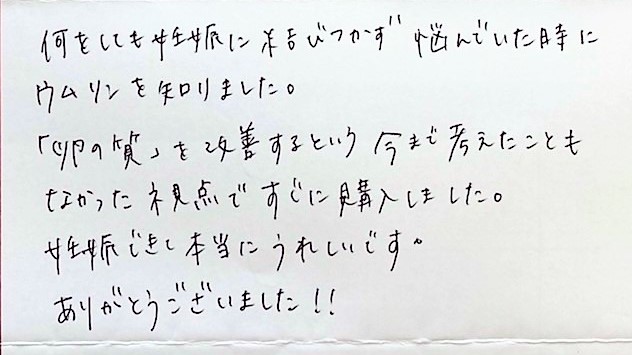 何をしても妊娠に結びつかず悩んでいた時に
ウムリンを知りました。
「卵の質」を改善するという今まで考えたことも
なかった視点ですぐに購入しました。
妊娠でき本当にうれしいです。
ありがとうございました!!